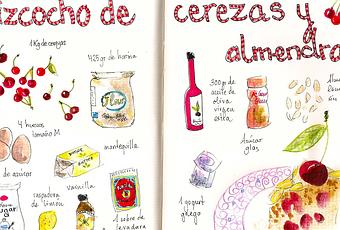 izcocho de
cerezas y
almendra
1 Kg de cerezas
425gr de harina
Flour
4 huevos
tamaño M
mantequilla
de azúcar
raspadura
de limón
vainilla
1 sobre de
levadura
300gr de
aceite de
oliva
virgen
extra
azúcar
glas
1 yogurt
griego